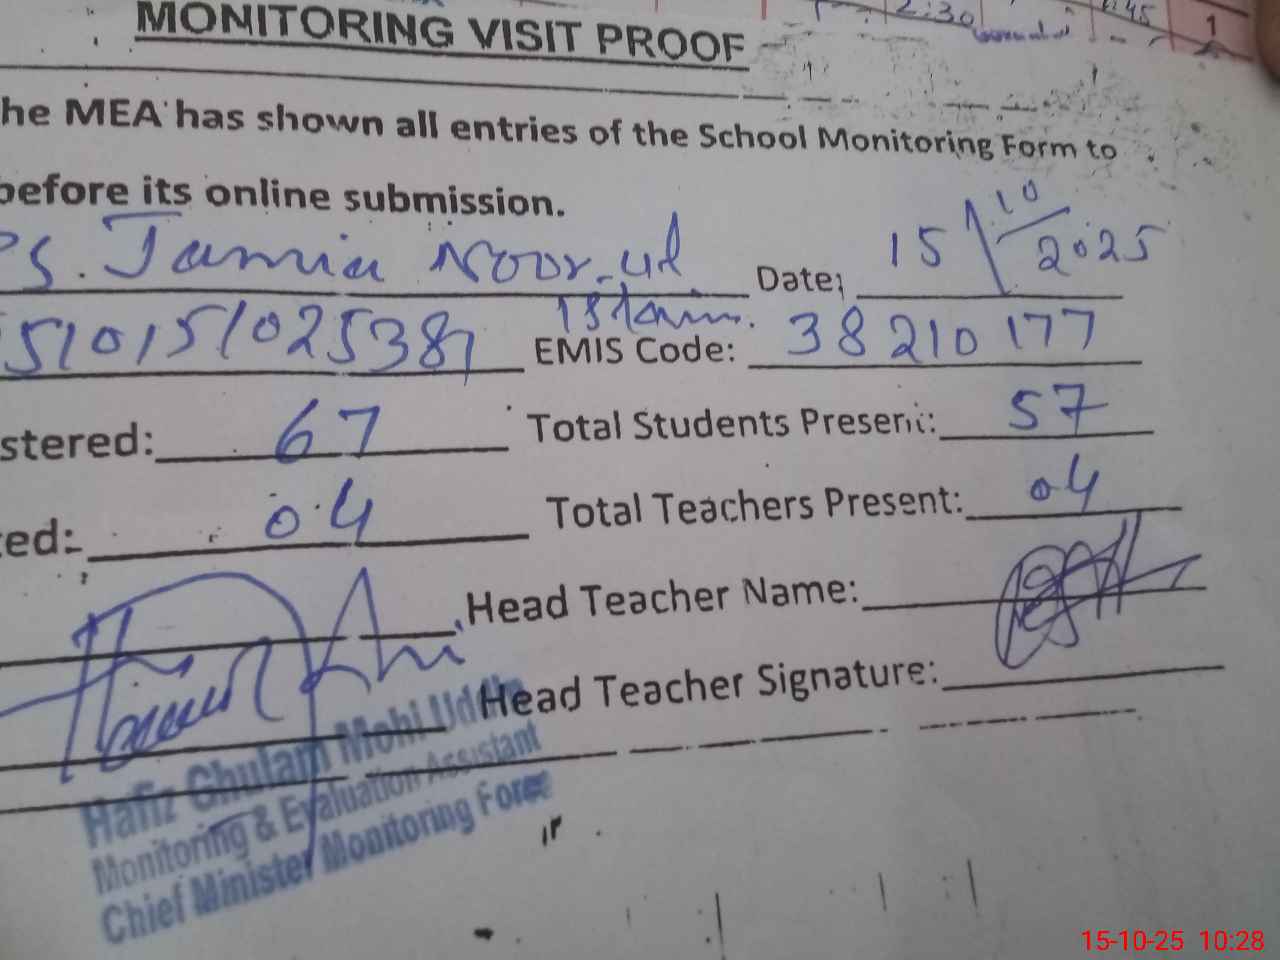 2:30 1:45 1
MONITORING VISIT PROOF
he MEA has shown all entries of the School Monitoring Form to
before its online submission.
PS. Jamia Noor-ul Islam. Date: 15/10/2025
51015102538 EMIS Code: 38210177
stered: 67 Total Students Present: 57
ted: 04 Total Teachers Present: 04
Head Teacher Name:
Head Teacher Signature:
Hafiz Ghulam Mohi Uddin
Monitoring & Evaluation Assistant
Chief Minister Monitoring Force
15-10-25 10:28